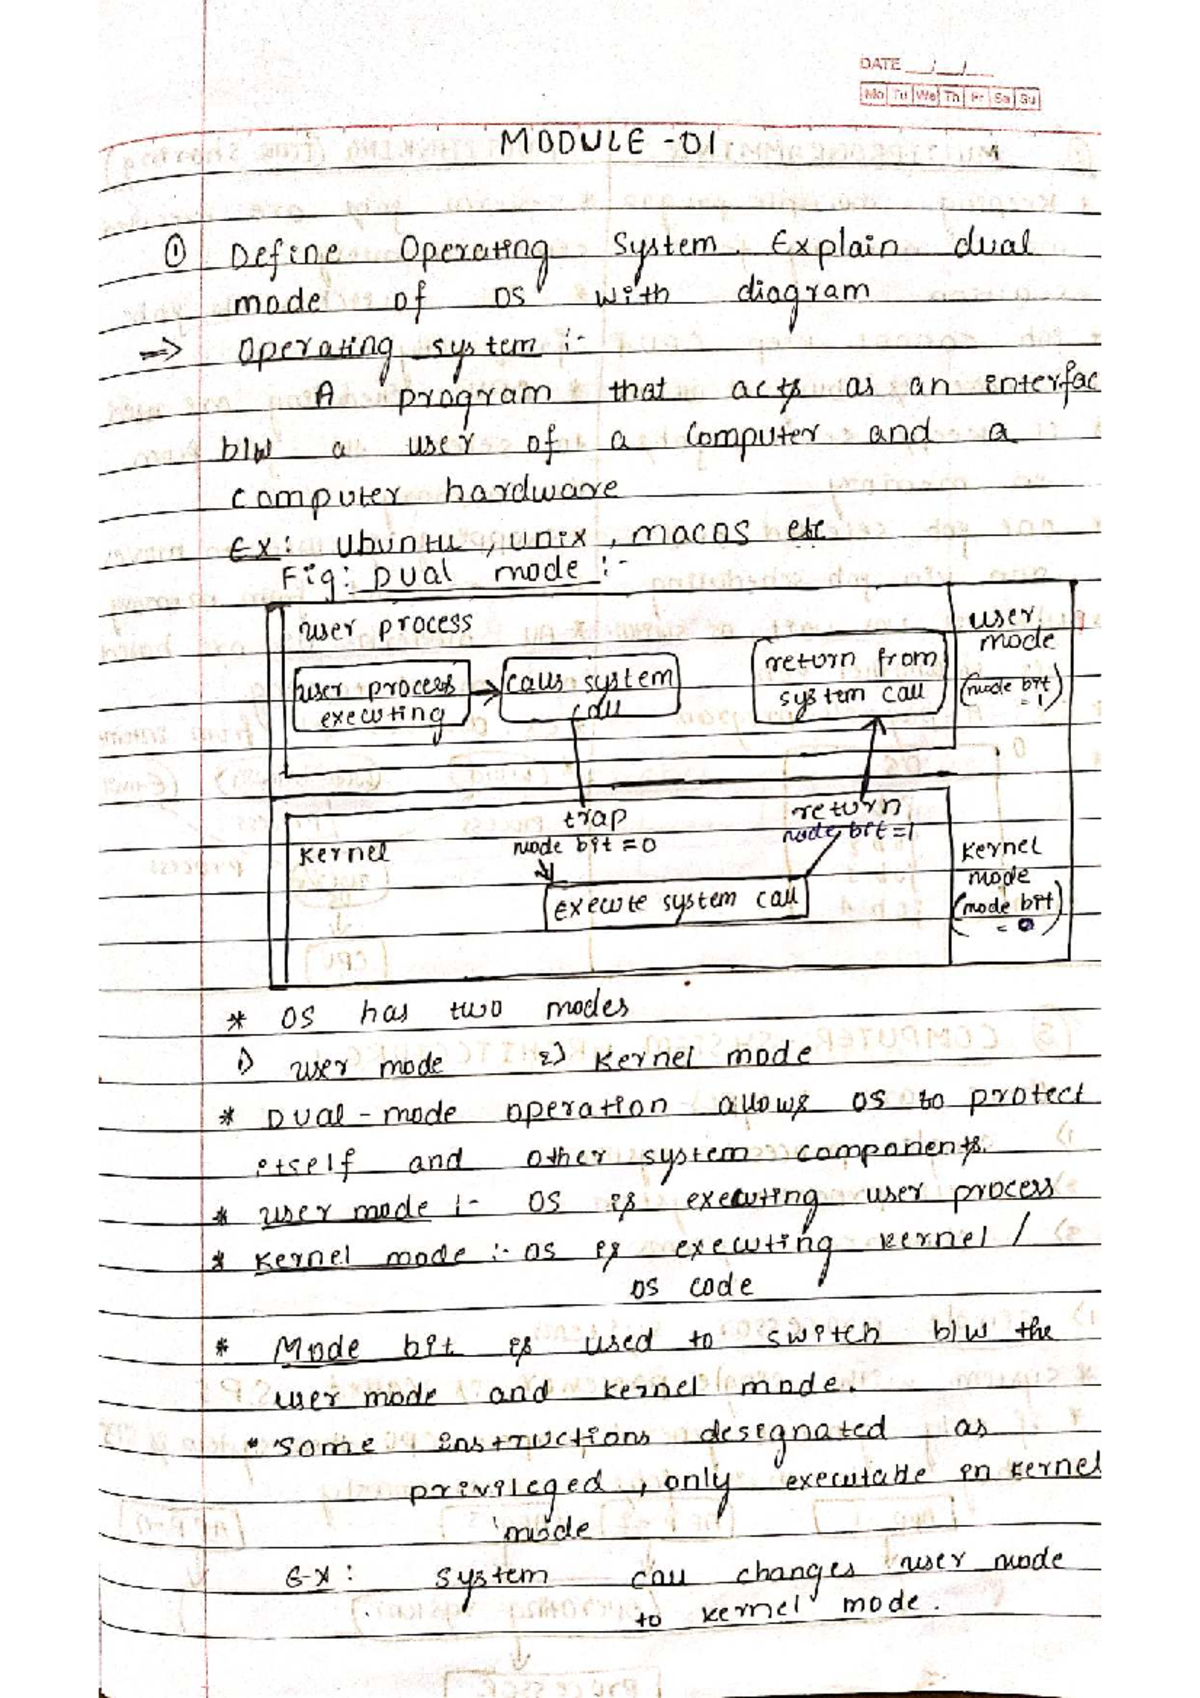 DATE __/__/__
Mo Tu We Th Fr Sa Su
MODULE -01
① Define Operating System. Explain dual
mode of OS with diagram
=> Operating system :-
A program that acts as an interfac
b/w a user of a computer and a
computer hardware
Ex: Ubuntu, unix, macOS etc
Fig: Dual mode :-
user process
user process
executing
calls system
call
return from
system call
user
mode
(mode bit
= 1)
trap
mode bit = 0
return
mode bit = 1
Kernel
execute system call
Kernel
mode
(mode bit
= 0)
* OS has two modes
1) user mode 2) Kernel mode
* Dual-mode operation allows OS to protect
itself and other system components.
* user mode :- OS is executing user process
* Kernel mode :- OS is executing kernel /
OS code
* Mode bit is used to switch b/w the
user mode and kernel mode.
* Some instructions designated as
privileged, only executable in kernel
mode
Ex: system call changes user mode
to kernel mode.